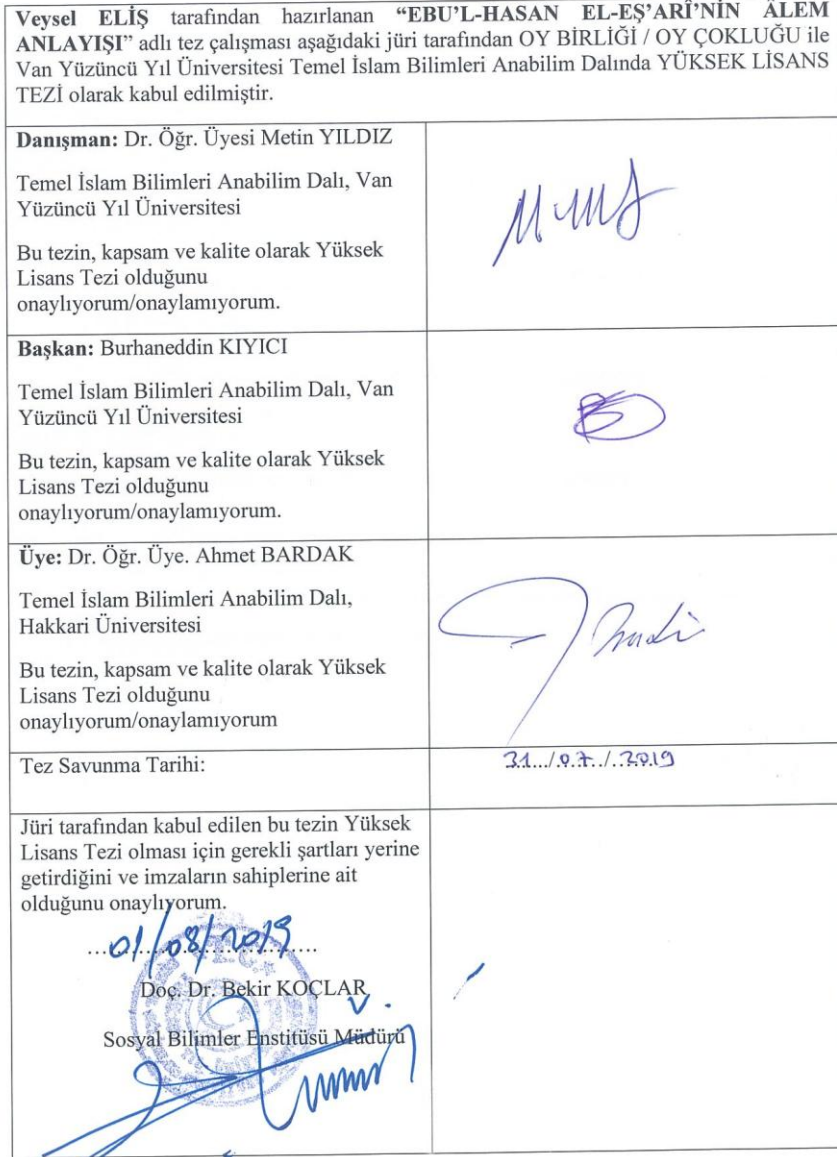 Veysel ELİŞ tarafından hazırlanan “EBU’L-HASAN EL-EŞ’ARÎ’NİN ÂLEM
ANLAYIŞI” adlı tez çalışması aşağıdaki jüri tarafından OY BİRLİĞİ / OY ÇOKLUĞU ile
Van Yüzüncü Yıl Üniversitesi Temel İslam Bilimleri Anabilim Dalında YÜKSEK LİSANS
TEZİ olarak kabul edilmiştir.
Danışman: Dr. Öğr. Üyesi Metin YILDIZ
Temel İslam Bilimleri Anabilim Dalı, Van
Yüzüncü Yıl Üniversitesi
Bu tezin, kapsam ve kalite olarak Yüksek
Lisans Tezi olduğunu
onaylıyorum/onaylamıyorum.
Başkan: Burhaneddin KIYICI
Temel İslam Bilimleri Anabilim Dalı, Van
Yüzüncü Yıl Üniversitesi
Bu tezin, kapsam ve kalite olarak Yüksek
Lisans Tezi olduğunu
onaylıyorum/onaylamıyorum.
Üye: Dr. Öğr. Üye. Ahmet BARDAK
Temel İslam Bilimleri Anabilim Dalı,
Hakkari Üniversitesi
Bu tezin, kapsam ve kalite olarak Yüksek
Lisans Tezi olduğunu
onaylıyorum/onaylamıyorum
Tez Savunma Tarihi:
31.../.07../..2019
Jüri tarafından kabul edilen bu tezin Yüksek
Lisans Tezi olması için gerekli şartları yerine
getirdiğini ve imzaların sahiplerine ait
olduğunu onaylıyorum.
01/08/2019
Doç. Dr. Bekir KOÇLAR
Sosyal Bilimler Enstitüsü Müdürü